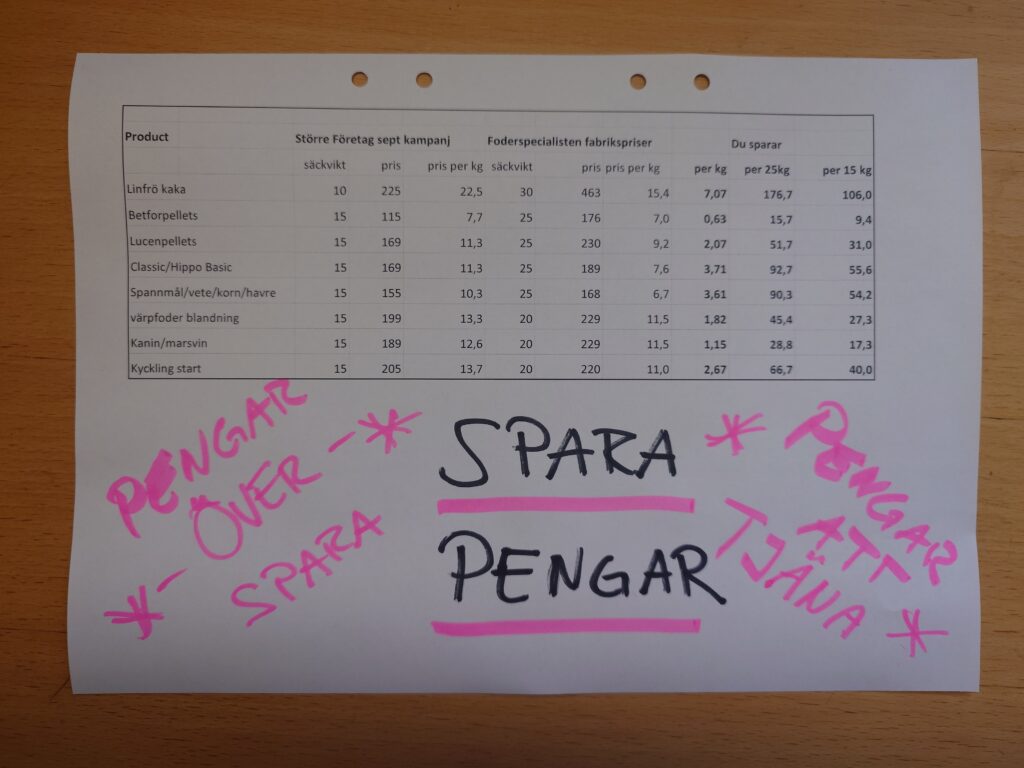 Product Större Företag sept kampanj Foderspecialisten fabrikspriser Du sparar
säckvikt pris pris per kg säckvikt pris pris per kg per kg per 25kg per 15 kg
Linfrö kaka 10 225 22,5 30 463 15,4 7,07 176,7 106,0
Betforpellets 15 115 7,7 25 176 7,0 0,63 15,7 9,4
Lucenpellets 15 169 11,3 25 230 9,2 2,07 51,7 31,0
Classic/Hippo Basic 15 169 11,3 25 189 7,6 3,71 92,7 55,6
Spannmål/vete/korn/havre 15 155 10,3 25 168 6,7 3,61 90,3 54,2
värpfoder blandning 15 199 13,3 20 229 11,5 1,82 45,4 27,3
Kanin/marsvin 15 189 12,6 20 229 11,5 1,15 28,8 17,3
Kyckling start 15 205 13,7 20 220 11,0 2,67 66,7 40,0
PENGAR
*- ÖVER -*
SPARA
SPARA
PENGAR
* PENGAR
ATT
TJÄNA *